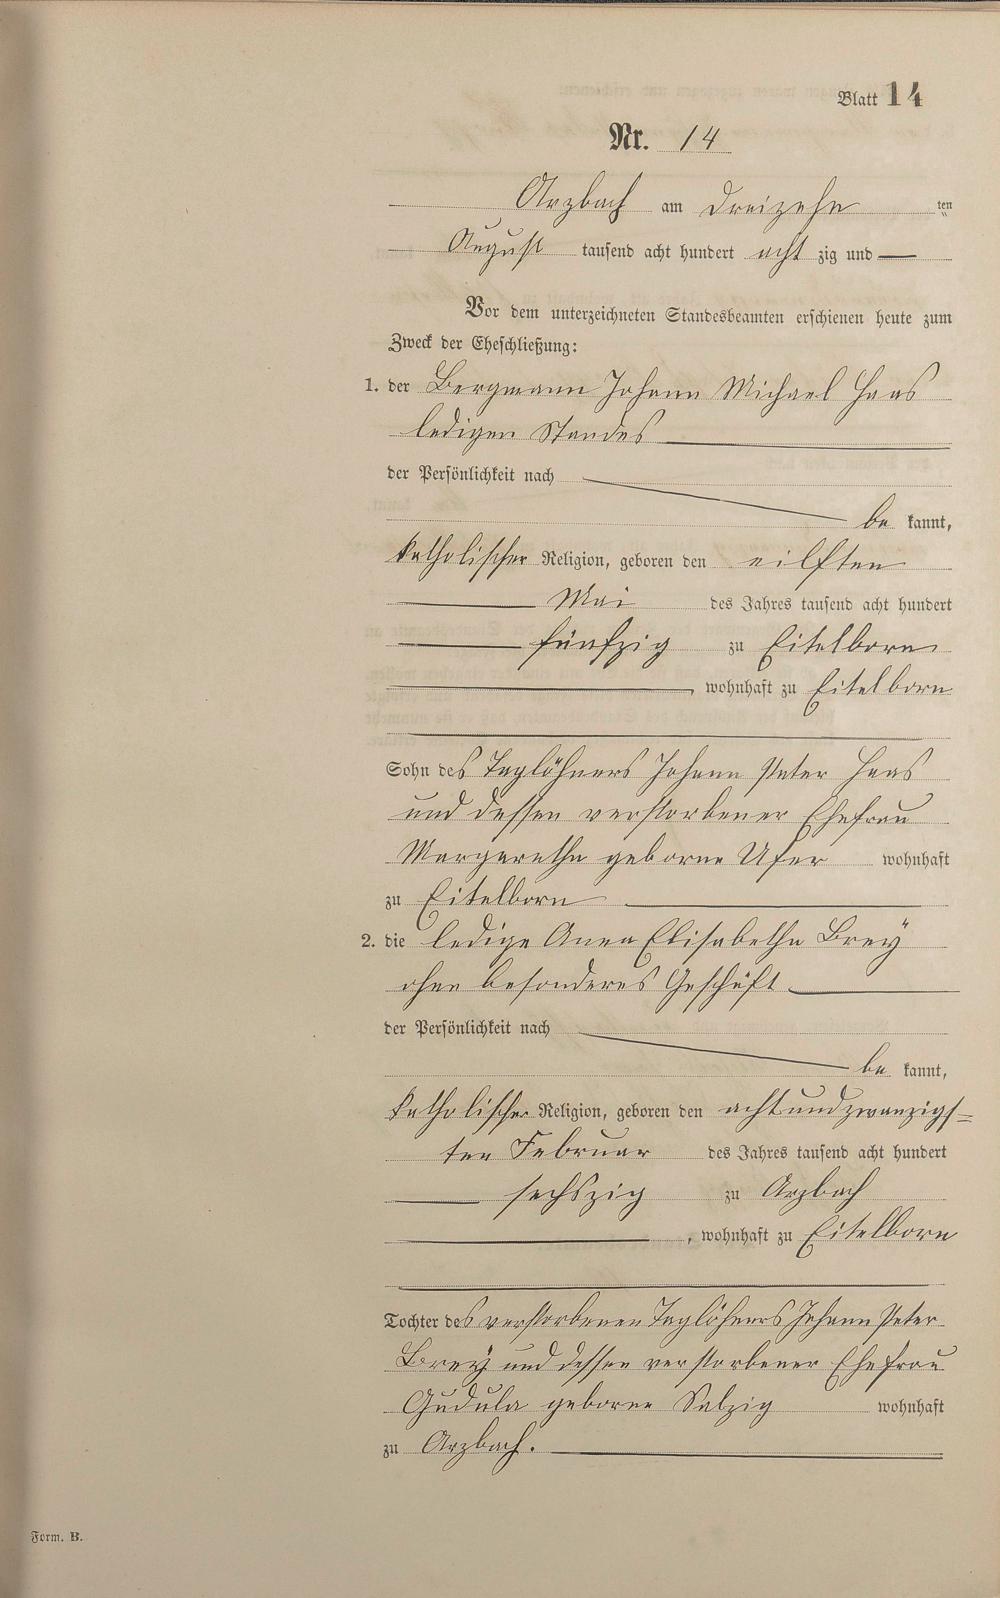 Blatt 14
Nr. 14
Arzbach am dreizehn ten
August tausend acht hundert acht zig und —
Vor dem unterzeichneten Standesbeamten erschienen heute zum
Zweck der Eheschließung:
1. der Bergmann Johann Michael Haas
ledigen Standes
der Persönlichkeit nach
be kannt,
katholischer Religion, geboren den eilften
Mai des Jahres tausend acht hundert
fünfzig zu Eitelborn
, wohnhaft zu Eitelborn
Sohn des Taglöhners Johann Peter Haas
und dessen verstorbener Ehefrau
Margaretha geborne Ufer wohnhaft
zu Eitelborn
2. die ledige Anna Elisabetha Breÿ
ohne besonderes Geschäft
der Persönlichkeit nach
be kannt,
katholischer Religion, geboren den achtundzwanzigs=
ten Februar des Jahres tausend acht hundert
sechszig zu Arzbach
, wohnhaft zu Eitelborn
Tochter des verstorbenen Taglöhners Johann Peter
Breÿ und dessen verstorbener Ehefrau
Gudula geborne Salzig wohnhaft
zu Arzbach.
Form. B.